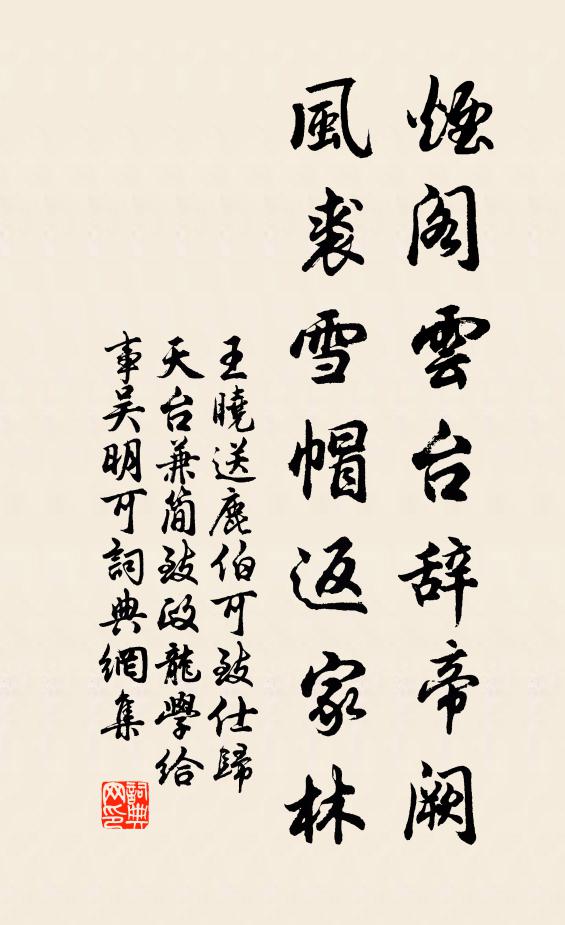 煙阁雲台辞帝阙
風裘雪帽返家林
王曉送鹿伯可致仕歸
天台兼简致政龍學给
事吴明可詞典網集
詞典
网印